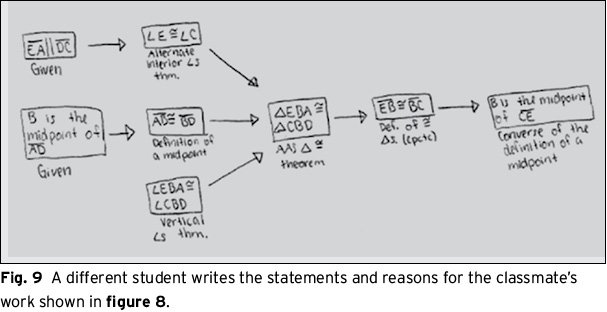 EA||DC
Given
∠E≅∠C
Alternate
interior ∠s
thm.
B is the
midpoint of
AD
Given
AB≅BD
Definition of
a midpoint
∠EBA≅
∠CBD
Vertical
∠s thm.
△EBA≅
△CBD
AAS △≅
theorem
EB≅BC
Def. of ≅
△s. (cpctc)
B is the midpoint
of CE
Converse of the
definition of a
midpoint
Fig. 9 A different student writes the statements and reasons for the classmate's
work shown in figure 8.